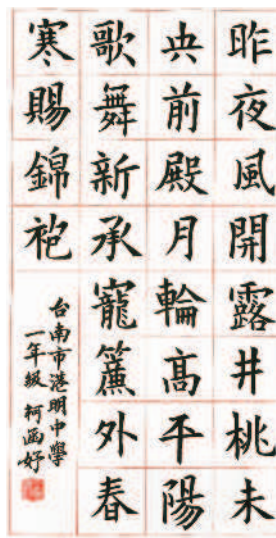 昨夜風開露井桃未
央前殿月輪高平陽
歌舞新承寵簾外春
寒賜錦袍
台南市港明中學
一年級 柯函妤